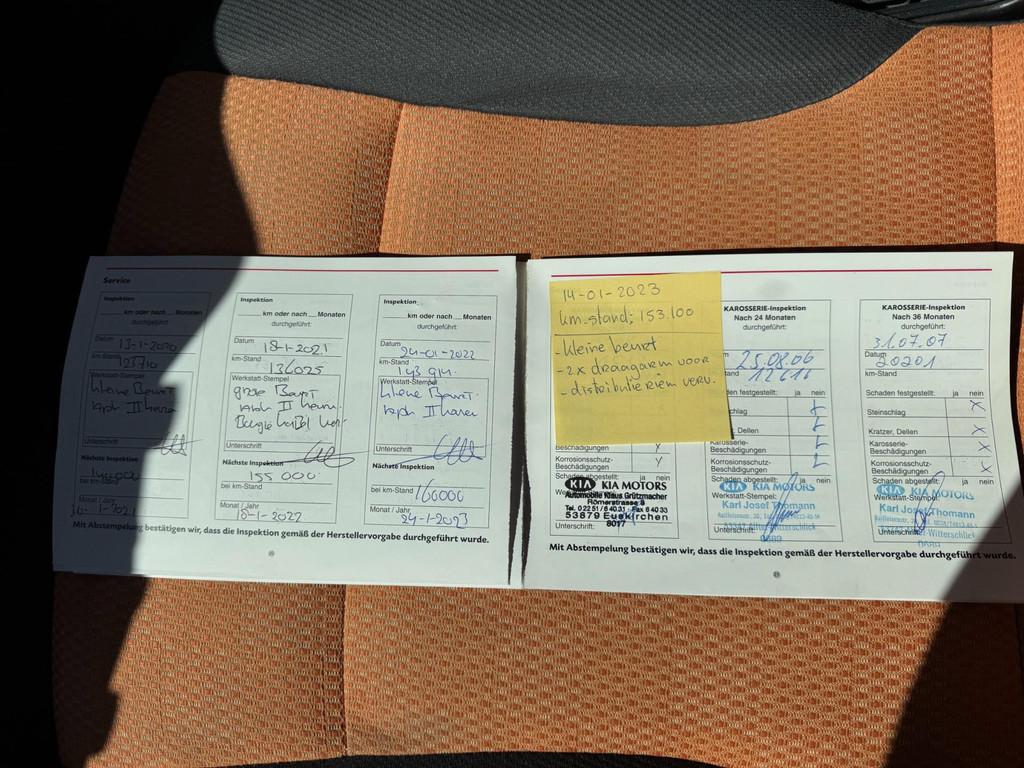 Service
Inspektion
km oder nach __ Monaten
durchgeführt:
Datum 13-1-2020
km-Stand 123710
Werkstatt-Stempel
kleine Beurt
Unterschrift
Nächste Inspektion
bei km-Stand
Monat / Jahr
Inspektion
__ km oder nach __ Monaten
durchgeführt:
Datum 18-1-2021
km-Stand 136025
Werkstatt-Stempel
grose Beurt
Unterschrift
Nächste Inspektion
155 000
bei km-Stand
Monat / Jahr
18-1-2022
Inspektion
__ km oder nach __ Monaten
durchgeführt:
Datum 24-01-2022
km-Stand
Werkstatt-Stempel
kleine Beurt
Unterschrift
Nächste Inspektion
bei km-Stand 160000
Monat / Jahr
24-1-2023
Mit Abstempelung bestätigen wir, dass die Inspektion gemäß der Herstellervorgabe durchgeführt wurde.
14-01-2023
km-stand; 153.100
- kleine beurt
- 2x draagarm voor
- distributieriem verv.
Beschädigungen
Korrosionsschutz-
Beschädigungen
Schaden abgestellt: ja nein
KIA KIA MOTORS
Automobile Klaus Grützmacher
Römerstrasse 8
Tel. 0 22 51 / 6 40 31 · Fax 6 40 33
53879 Euskirchen
8017
Unterschrift:
KAROSSERIE-Inspektion
Nach 24 Monaten
durchgeführt:
25.08.06
12616
Schaden festgestellt: ja nein
Kratzer, Dellen
Karosserie-
Beschädigungen
Korrosionsschutz-
Beschädigungen
Schaden abgestellt: ja nein
KIA KIA MOTORS
Werkstatt-Stempel:
Karl Josef Thomann
KAROSSERIE-Inspektion
Nach 36 Monaten
durchgeführt:
31.07.07
Datum
20201
km-Stand
Schaden festgestellt: ja nein
Steinschlag X
Kratzer, Dellen X
Karosserie-
Beschädigungen X
Korrosionsschutz-
Beschädigungen X
Schaden abgestellt: ja nein
KIA KIA MOTORS
Werkstatt-Stempel:
Karl Josef Thomann
Unterschrift:
Mit Abstempelung bestätigen wir, dass die Inspektion gemäß der Herstellervorgabe durchgeführt wurde.